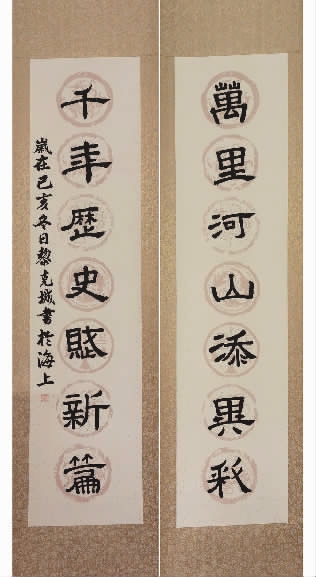 萬里河山添異彩
千年歷史賦新篇
歲在己亥冬日黎克城書於海上